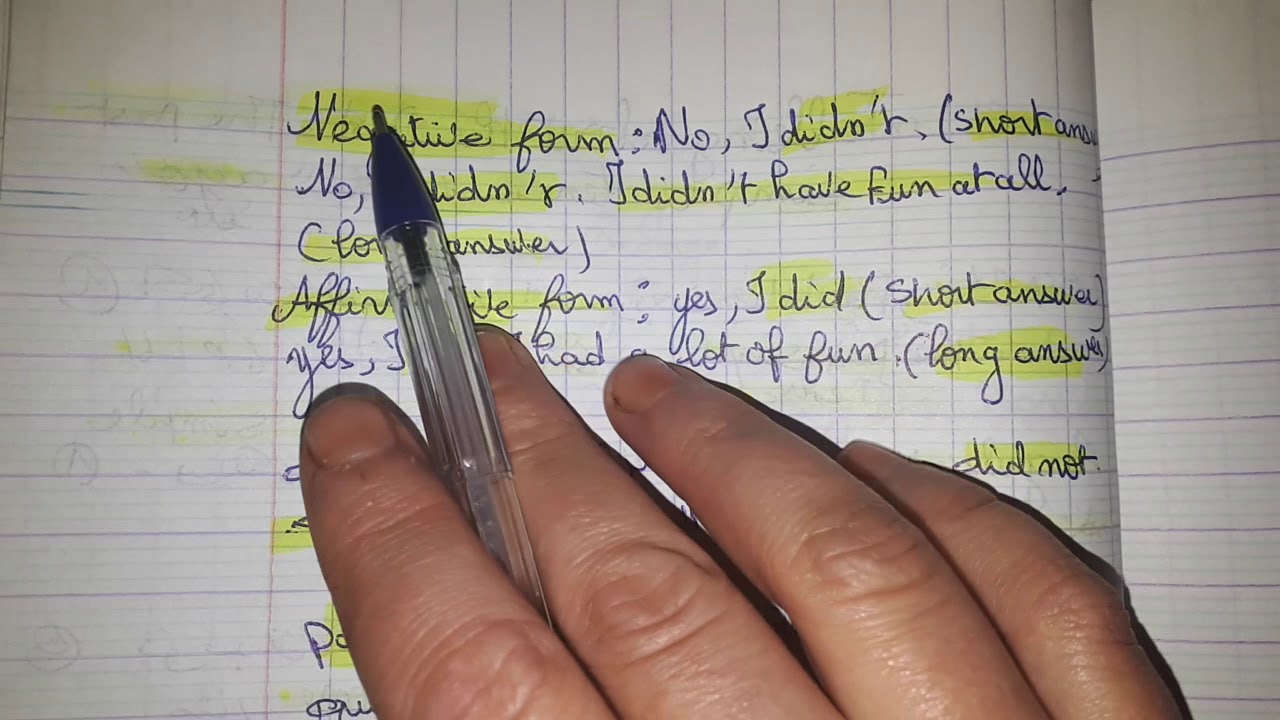 Negative form: No, I didn't. (short answ
No, didn't. I didn't have fun at all.
(lo answer)
Affir ive form: yes, I did (short answer)
yes, I had a lot of fun. (long answer)
did not.